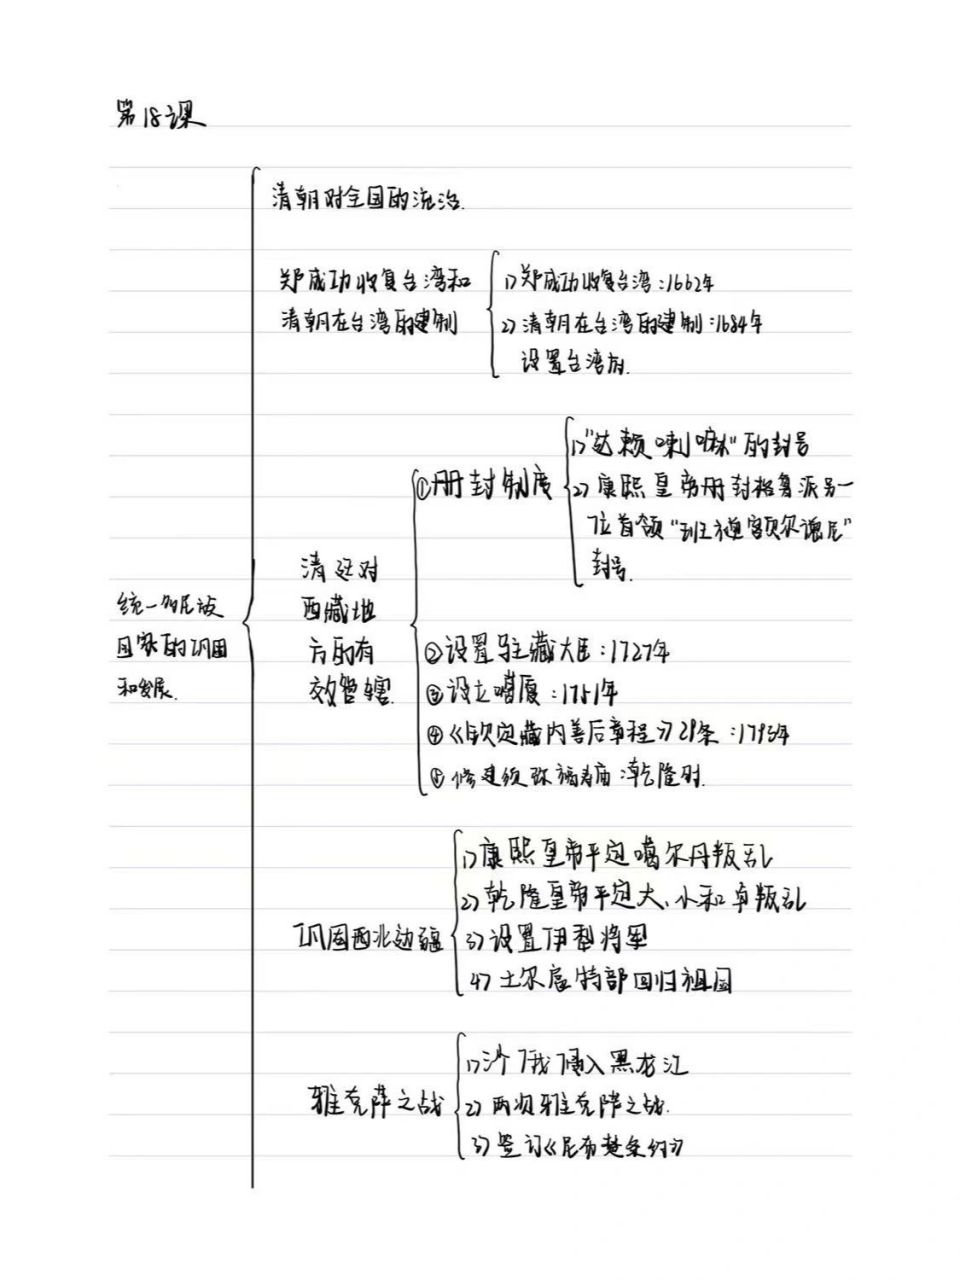 第18课
清朝对全国的统治.
郑成功收复台湾和
清朝在台湾的建制
1)郑成功收复台湾:1662年
2)清朝在台湾的建制:1684年
设置台湾府.
清廷对
西藏地
方的有
效管辖
①册封制度
1)"达赖喇嘛"的封号
2)康熙皇帝册封格鲁派另一
位首领"班禅额尔德尼"
封号.
②设置驻藏大臣:1727年
③设立噶厦:1751年
④《钦定藏内善后章程》29条:1793年
⑤修建须弥福寿庙:乾隆时.
统一多民族
国家的巩固
和发展.
巩固西北边疆
1)康熙皇帝平定噶尔丹叛乱
2)乾隆皇帝平定大、小和卓叛乱
3)设置伊犁将军
4)土尔扈特部回归祖国
雅克萨之战
1)沙俄侵入黑龙江
2)两次雅克萨之战.
3)签订《尼布楚条约》